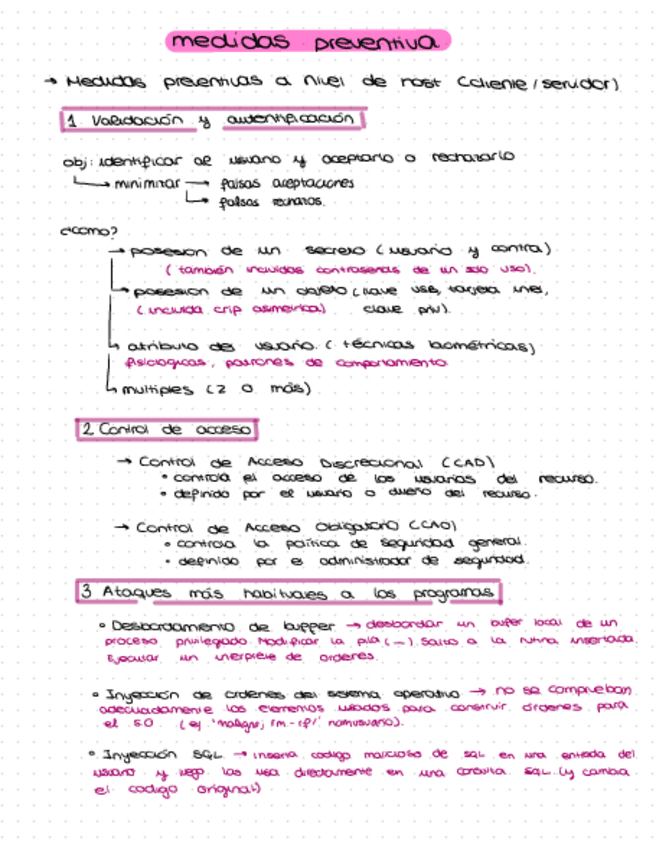 medidas preventiva
→ Medidas preventivas a nivel de host (cliente / servidor)
1 Validación y autentificación
obj: identificar al usuario y aceptarlo o rechazarlo
minimizar → falsas aceptaciones
falsos rechazos.
¿como?
→ posesion de un secreto (usuario y contra)
(también incluidas contraseñas de un solo uso).
posesion de un objeto (llave USB, tarjeta intel,
(incluida crip asimetrica) clave priv).
atributo del usuario. (técnicas biométricas)
fisiologicas, patrones de comportamiento
multiples (2 o más)
2 Control de acceso
→ Control de Acceso Discrecional (CAD)
• controla el acceso de los usuarios del recurso.
• definido por el usuario o dueño del recurso.
→ Control de Acceso Obligatorio (CAO)
• controla la política de seguridad general.
• definido por el administrador de seguridad.
3 Ataques más habituales a los programas
• Desbordamiento de buffer → desbordar un bufer local de un
proceso privilegiado. Modificar la pila (—). Salto a la rutina insertada.
Ejecutar un interprete de ordenes.
• Inyección de ordenes del sistema operativo → no se comprueban
adecuadamente los elementos usados para construir órdenes para
el SO. (ej 'maligno; rm -rf/' nomusuario).
• Inyección SQL → inserta codigo malicioso de SQL en una entrada del
usuario y luego las usa directamente en una consulta SQL (y cambia
el codigo original)